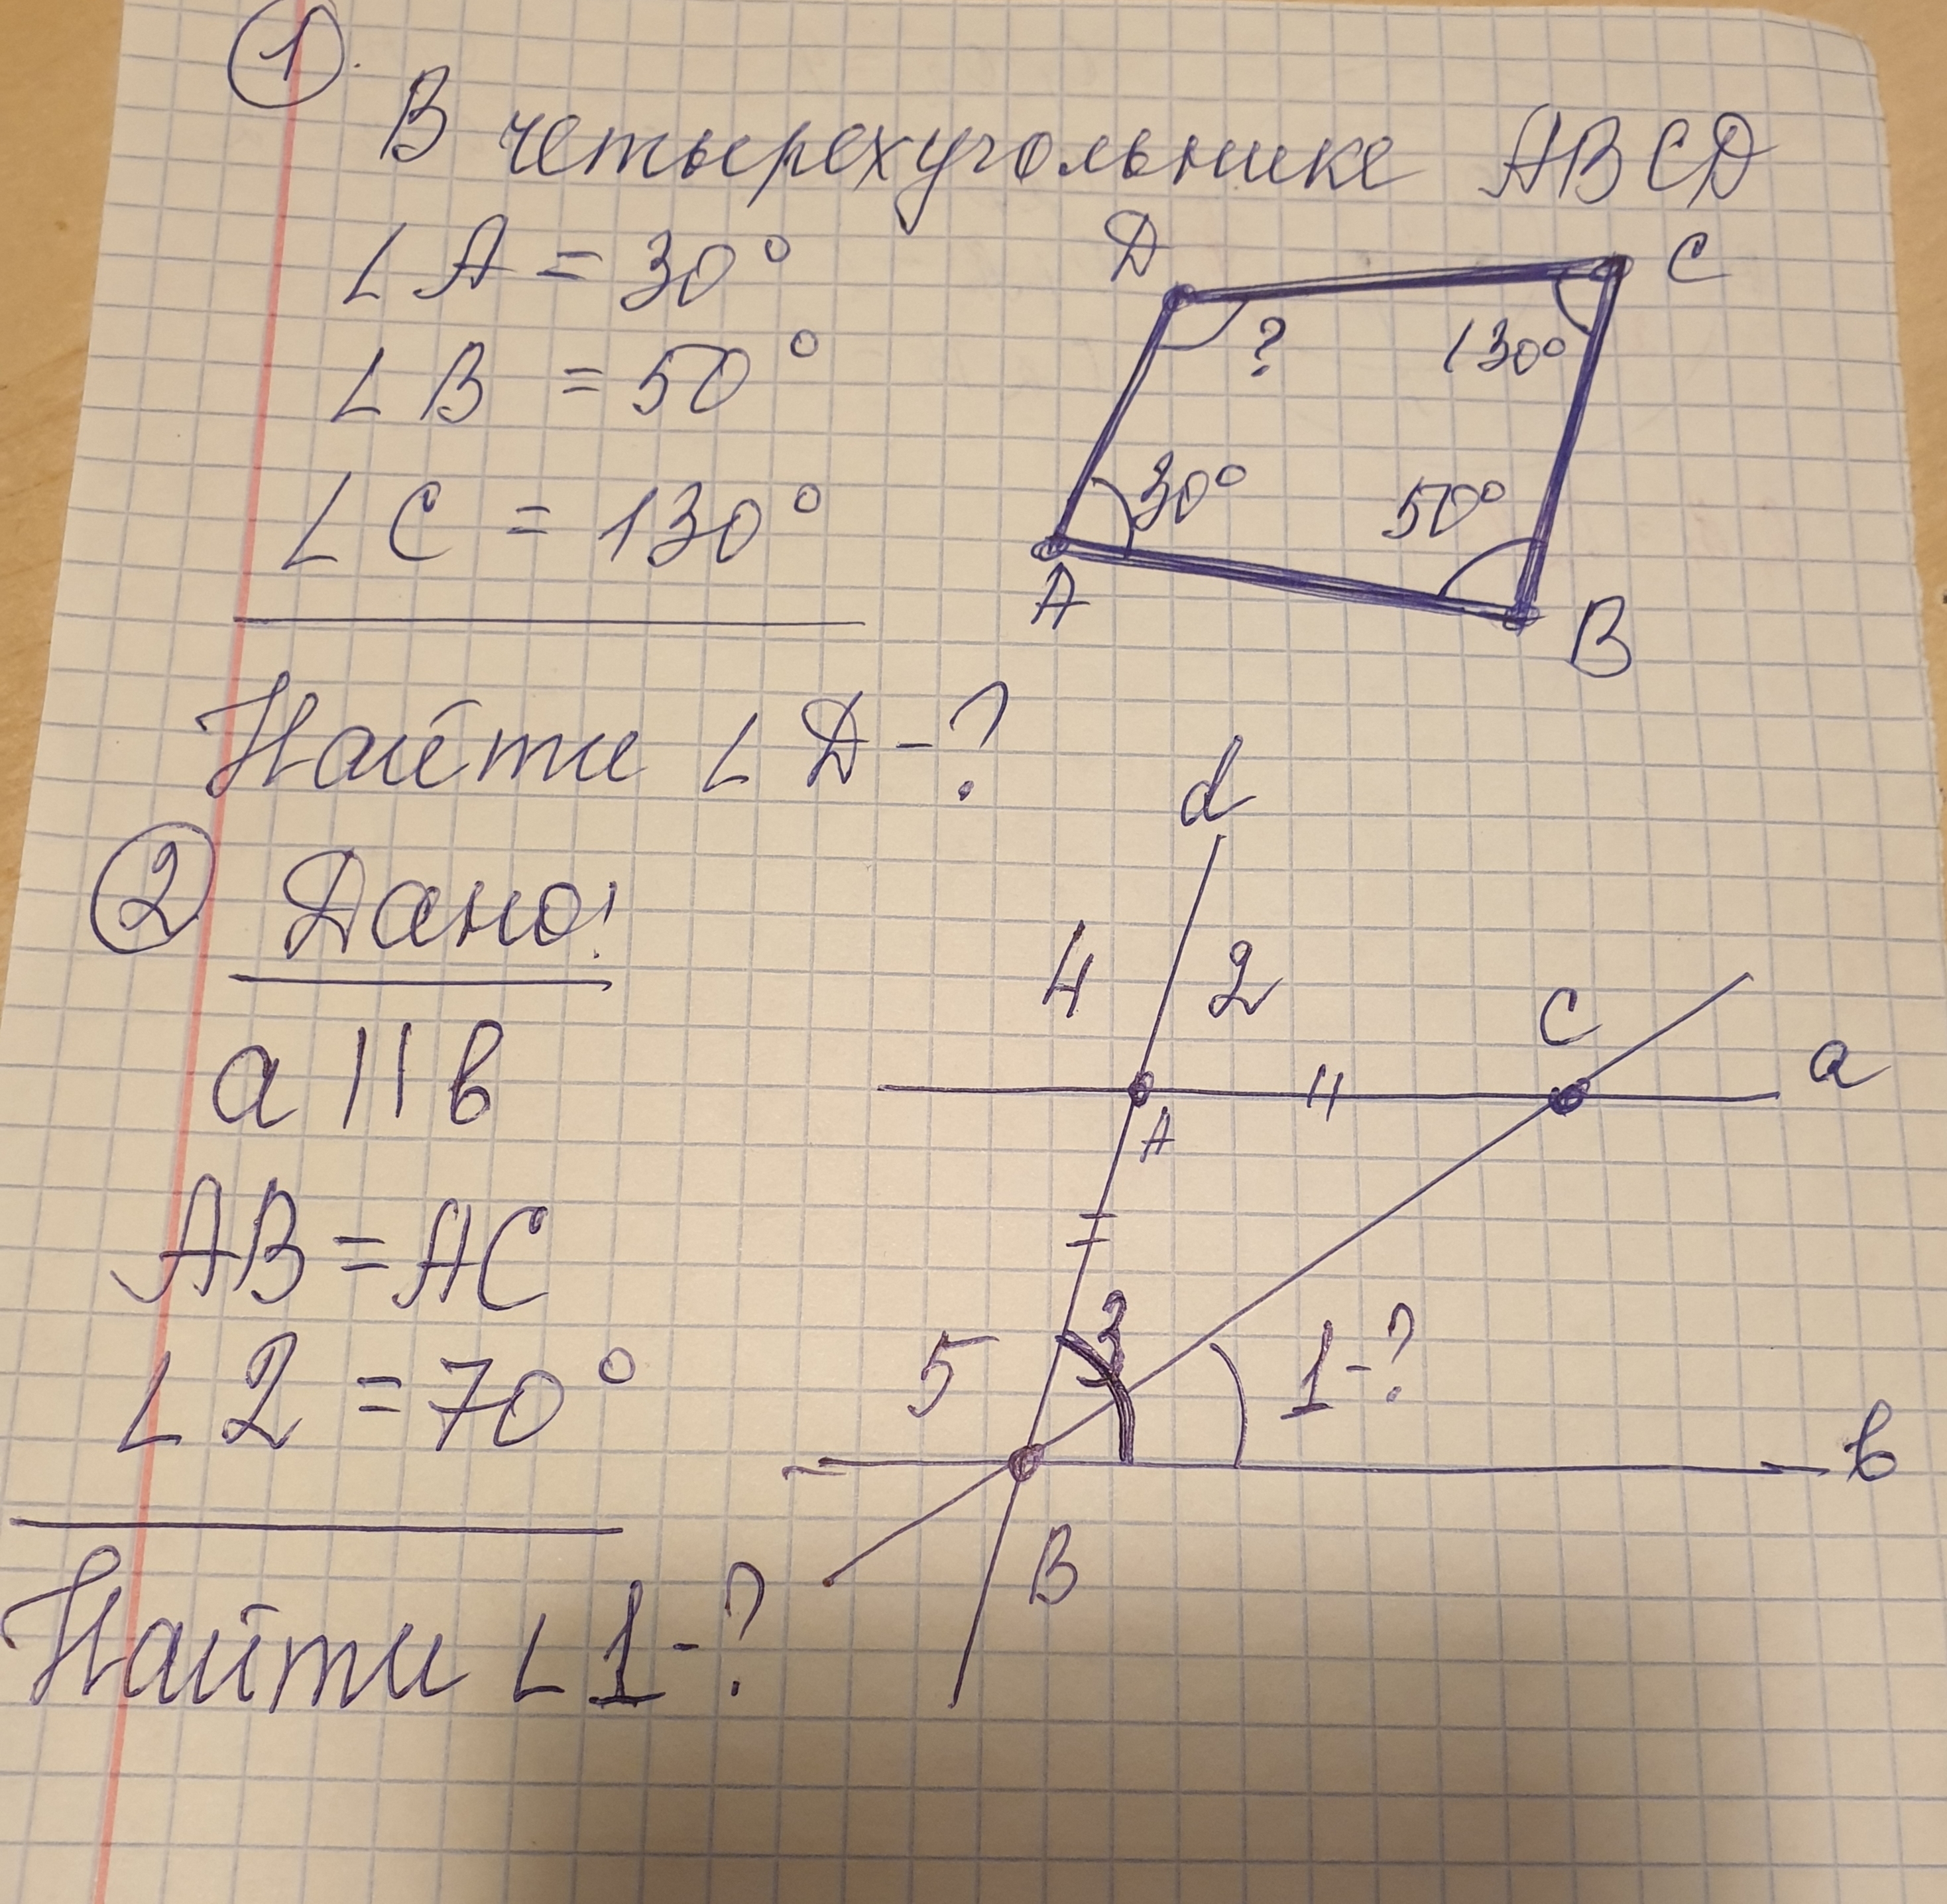 1
В четырехугольнике ABCD
∠A = 30°
∠B = 50°
∠C = 130°
D
C
?
130°
30°
50°
A
B
Найти ∠D - ?
2 Дано:
a || b
AB = AC
∠2 = 70°
Найти ∠1 - ?
d
4
2
C
a
A
3
5
1 - ?
b
B